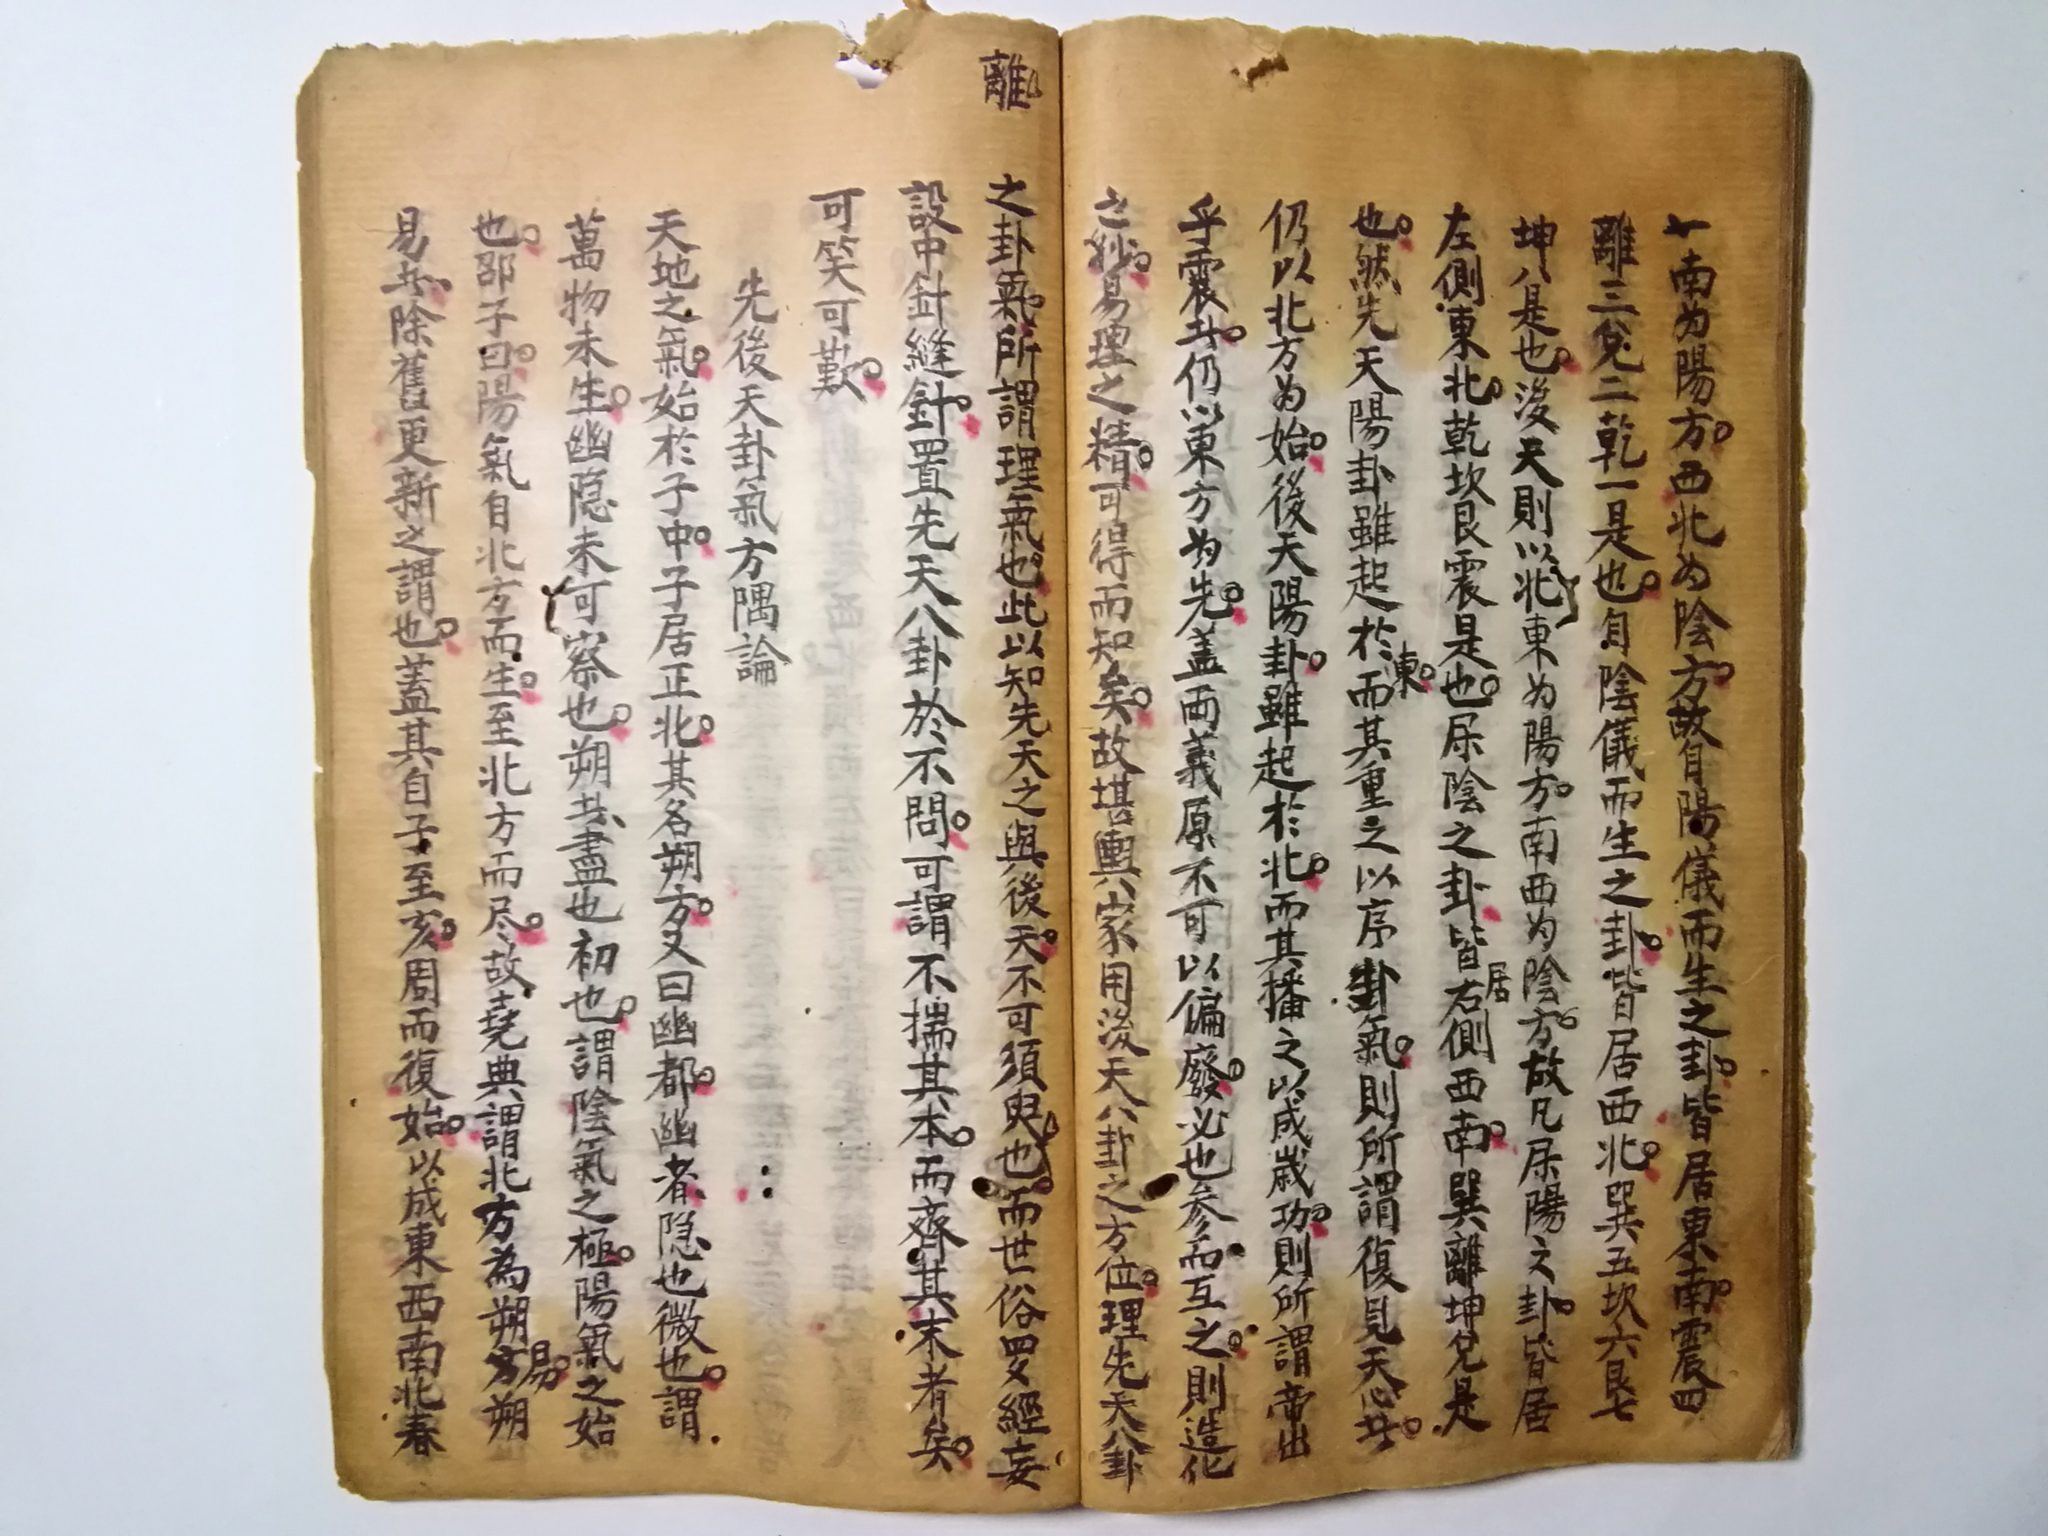 南为陽方西北为陰方故自陽儀而生之卦皆居東南震四
離三兌二乾一是也自陰儀而生之卦皆居西北巽五坎六艮七
坤八是也後天則以北東为陽方南西为陰方故凡屬陽之卦皆居
左側東北乾坎艮震是也屬陰之卦皆居右側西南巽離坤兌是
也然先天陽卦雖起於東而其重之以序卦氣則所謂復見天心
仍以北方为始後天陽卦雖起於北而其播之以成歲功則所謂帝出
乎震仍以東方为先盖两義原不可以偏廢必也参而互之則造化
之妙易理之精可得而知矣故堪輿家用後天八卦之方位理先天八卦
離
之卦氣所謂理氣也此以知先天之與後天不可須臾也而世俗四經妄
設中針縫針置先天八卦於不問可謂不揣其本而齊其末者矣
可笑可歎
先後天卦氣方隅論
天地之氣始於子中子居正北其名朔方又曰幽都幽者隐也微也謂
萬物未生幽隐未可察也朔共盡也初也謂陰氣之極陽氣之始
也邵子曰陽氣自北方而生至北方而尽故堯典謂北方為朔易朔
易共除舊更新之謂也蓋其自子至亥周而復始以成東西南北春